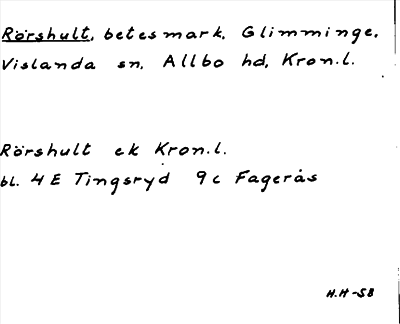 Rörshult, betesmark, Glimminge,
Vislanda sn, Allbo hd, Kron.l.
Rörshult ek Kron.l.
bl. 4E Tingsryd 9c Fagerås
H.H-58